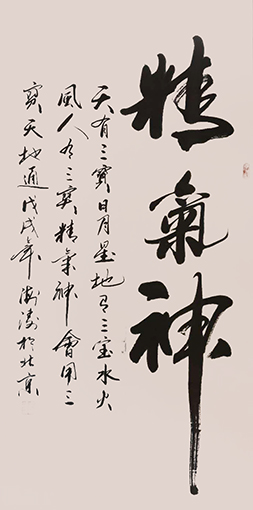 精氣神
天有三寶日月星地有三宝水火
風人有三寶精氣神會用三
寳天地通戊戌年海濤於北京